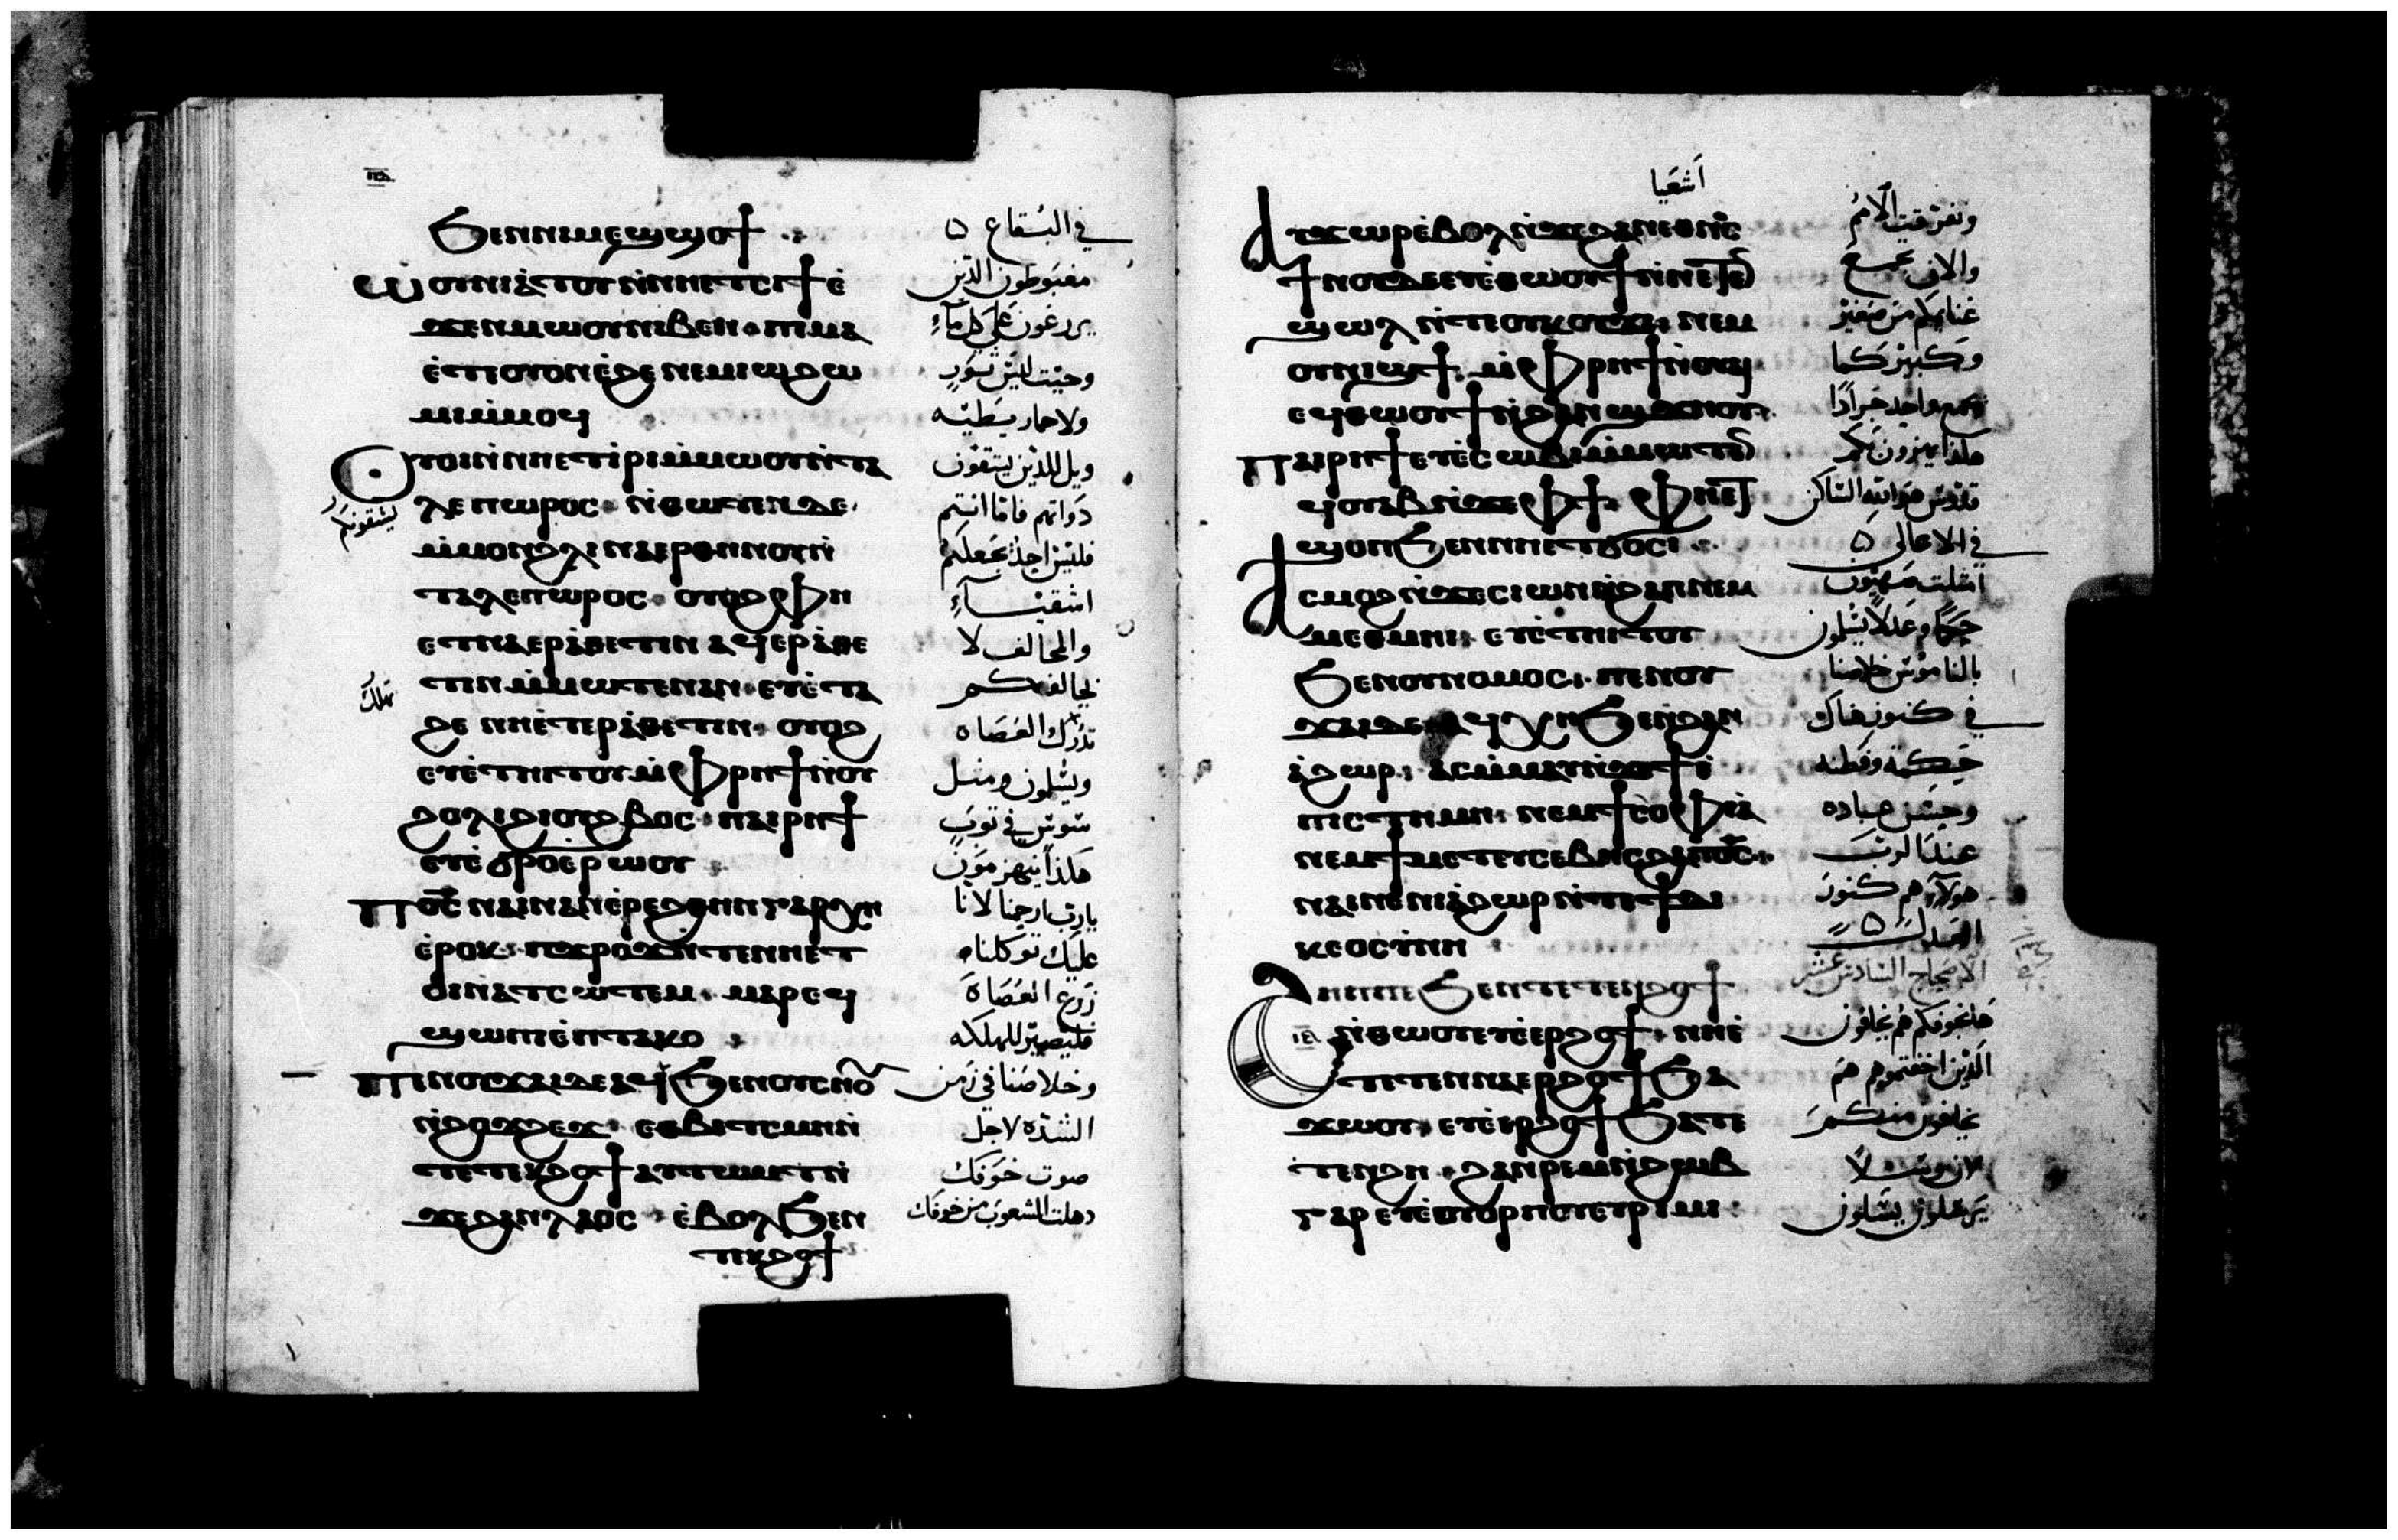 ϧⲉⲛⲛⲓⲙⲉϣϣⲟϯ
ⲱⲟⲩⲛⲓⲁ̀ⲧⲟⲩⲛ̀ⲛⲏⲉⲧⲥⲓϯⲉ̀
ϫⲉⲛⲙⲱⲟⲩⲛⲓⲃⲉⲛ ⲡⲓⲙⲁ
ⲉ̀ⲧⲓⲟⲩⲟⲛⲉ̀ϩⲉ ⲛⲉⲙⲓⲱϩⲱ
ⲙⲓⲙ̀ⲙⲟϥ
ⲟⲩⲟⲓⲛ̀ⲛⲏⲉⲧⲓⲣⲓⲙ̀ⲙⲱⲟⲩⲛ̀ⲧⲁ
ⲗⲉⲡⲱⲣⲟⲥ ⲛ̀ⲑⲱⲧⲉⲛⲇⲉ
ⲙ̀ⲙⲟⲛϩⲗⲓ ⲛⲁⲉⲣⲑⲏⲛⲟⲩⲛ̀
ⲧⲁⲗⲉⲡⲱⲣⲟⲥ ⲟⲩⲟϩ ⲫⲏ
ⲉⲧⲛⲁⲉⲣⲁ̀ⲑⲉⲧⲓⲛ ⲁϥⲉⲣⲁ̀ⲑⲉ
ⲧⲓⲛ ⲙ̀ⲙⲱⲧⲉⲛⲁⲛ ⲉⲩⲉ̀ⲧⲁ
ϩⲉ ⲛⲏⲉ̀ⲧⲉⲣⲁ̀ⲑⲉⲧⲓⲛ ⲟⲩⲟϩ
ⲉⲩⲉ̀ⲧⲏⲓⲧⲟⲩ ⲙ̀ⲫⲣⲏϯⲛ̀ⲟⲩ
ϩⲟⲗⲓϩⲓⲟⲩϩⲃⲟⲥ ⲡⲁⲓⲣⲏϯ
ⲉⲩⲉ̀ϭⲣⲟⲉ̀ⲣⲱⲟⲩ
ⲡⲟ̅ⲥ̅ ⲛⲁⲓⲛⲁⲛ ⲉ̀ⲣⲉϩⲑⲏⲛ ⲅⲁⲣⲭⲏ
ⲉ̀ⲣⲟⲕ ⲡϫⲣⲟϫⲛ̀ⲧⲉⲛⲏⲉⲧ
ⲟⲓⲛ̀ⲁⲧⲥⲱⲧⲉⲙ ⲙⲁⲣⲉϥ
ϣⲱⲡⲓⲉ̀ⲡⲧⲁⲕⲟ
ⲡⲉⲛⲟⲩϫⲁⲓⲇⲉⲁϥϧⲉⲛⲟⲩⲥⲏⲟⲩ
ⲛ̀ϩⲟϫϩⲉϫ ⲉⲑⲃⲉⲧⲥⲙⲏⲛ̀
ⲧⲉⲧⲉⲕϩⲟϯⲁⲩⲧⲱⲙⲧⲛ̀
ϫⲉϩⲁⲛⲗⲁⲟⲥ ⲉ̀ⲃⲟⲗϧⲉⲛ
ⲧⲉⲕϩⲟϯ
في البقاع
مغبوطون الذين
يزرعون على كل ماء
وحيث ليس ثور
ولا حمار يطيه
ويل للذين يشقون
ذواتهم فاما انتم
فليس احد يجعلكم
اشقياء
والمخالف لا
يخالفكم
تدرك العصاة
ويسلمون ومثل
سوس في ثوب
هكذا ينهزمون
يارب ارحمنا لاننا
عليك توكلنا
زرع العصاة
فليصير للهلكه
وخلاصنا في زمن
الشده لاجل
صوت خوفك
دهلت الشعوب من خوفك
اشعيا
ⲁⲩϫⲱⲣⲉ̀ⲃⲟⲗⲛ̀ϫⲉϩⲁⲛⲉⲑⲛⲟⲥ
ϯⲛⲟⲩⲇⲉⲉⲩⲉ̀ⲑⲱⲟⲩϯⲛ̀ⲛⲉⲧⲉⲛ
ϣⲱⲗ ⲛ̀ⲧⲉⲟⲩⲕⲟⲩϫⲓ ⲛⲉⲙ
ⲟⲩⲛⲓϣϯ ⲙ̀ⲫⲣⲏϯⲛ̀ⲟⲩϣ
ⲉϥⲑⲱⲟⲩϯⲛ̀ϩⲁⲛϣϫⲏⲟⲩ
ⲡⲁⲓⲣⲏϯⲉⲩⲉ̀ⲥⲱⲃⲓⲙ̀ⲙⲱⲧⲉⲛ
ϥⲟⲩⲁⲃⲛ̀ϫⲉⲫϯ ⲫⲏⲉⲧ
ϣⲟⲡϧⲉⲛⲛⲏⲉⲧϭⲟⲥⲓ
ⲁⲥⲙⲟϩⲛ̀ϫⲉⲥⲓⲱⲛⲛ̀ϩⲁⲡⲛⲉⲙ
ⲙⲉⲑⲙⲏⲓ ⲉⲩⲉ̀ⲧⲏⲓⲧⲟⲩ
ϧⲉⲛⲟⲩⲛⲟⲙⲟⲥ ⲡⲉⲛⲟⲩ
ϫⲁⲓⲇⲉ ⲁϥⲭⲏϧⲉⲛϩⲁⲛ
ⲁ̀ϩⲱⲣ ⲁⲥⲙ̀ⲙⲁⲩⲛ̀ϫⲉϯⲉ̀
ⲡⲓⲥⲧⲏⲙⲏ ⲛⲉⲙϯⲥⲟⲫⲓⲁ̀
ⲛⲉⲙϯⲙⲉⲧⲉⲩⲥⲉⲃⲏⲥϩⲁⲡⲟ̅ⲥ̅
ⲛⲁⲓⲛⲉⲛⲓⲁ̀ϩⲱⲣⲛ̀ⲧⲉϯⲇⲓ
ⲕⲉⲟⲥⲩⲛⲏ
ϩⲏⲡⲡⲉϧⲉⲛⲧⲉⲧⲉⲛϩⲟϯ
ⲛ̀ⲑⲱⲟⲩⲉⲩⲉ̀ⲉⲣϩⲟϯ ⲛⲏⲉ̀
ⲧⲉⲧⲉⲛⲛⲁⲉⲣϩⲟϯϧⲁ
ϫⲱⲟⲩ ⲉⲩⲉ̀ⲉⲣϩⲟϯϧⲁⲧⲉ
ⲧⲉⲛϩⲏ ϩⲁⲛⲣⲉⲙⲛ̀ϩⲱⲃ
ⲅⲁⲣ ⲉⲩⲉ̀ⲟⲩⲟⲣⲡⲟⲩⲉⲩⲣⲓⲙⲓ
وتفرقت الامم
والان تجمع
غنائمكم من صغير
وكبير كما
يجمع واحد جرادا
هكذا يهزون بكم
قدوس هو الله الساكن
في الاعالي
امتلت صهيون
حكما وعدلا يسلمون
بالناموس خلاصنا
في كنوز هناك
حكمة وفطنه
وحسن عباده
عند الرب
هولاء هم كنوز
العدل
الاصحاح السادس عشر
ها بخوفكم هم يخافون
الذين اخفتموهم هم
يخافون منكم
يرسلون يبكون